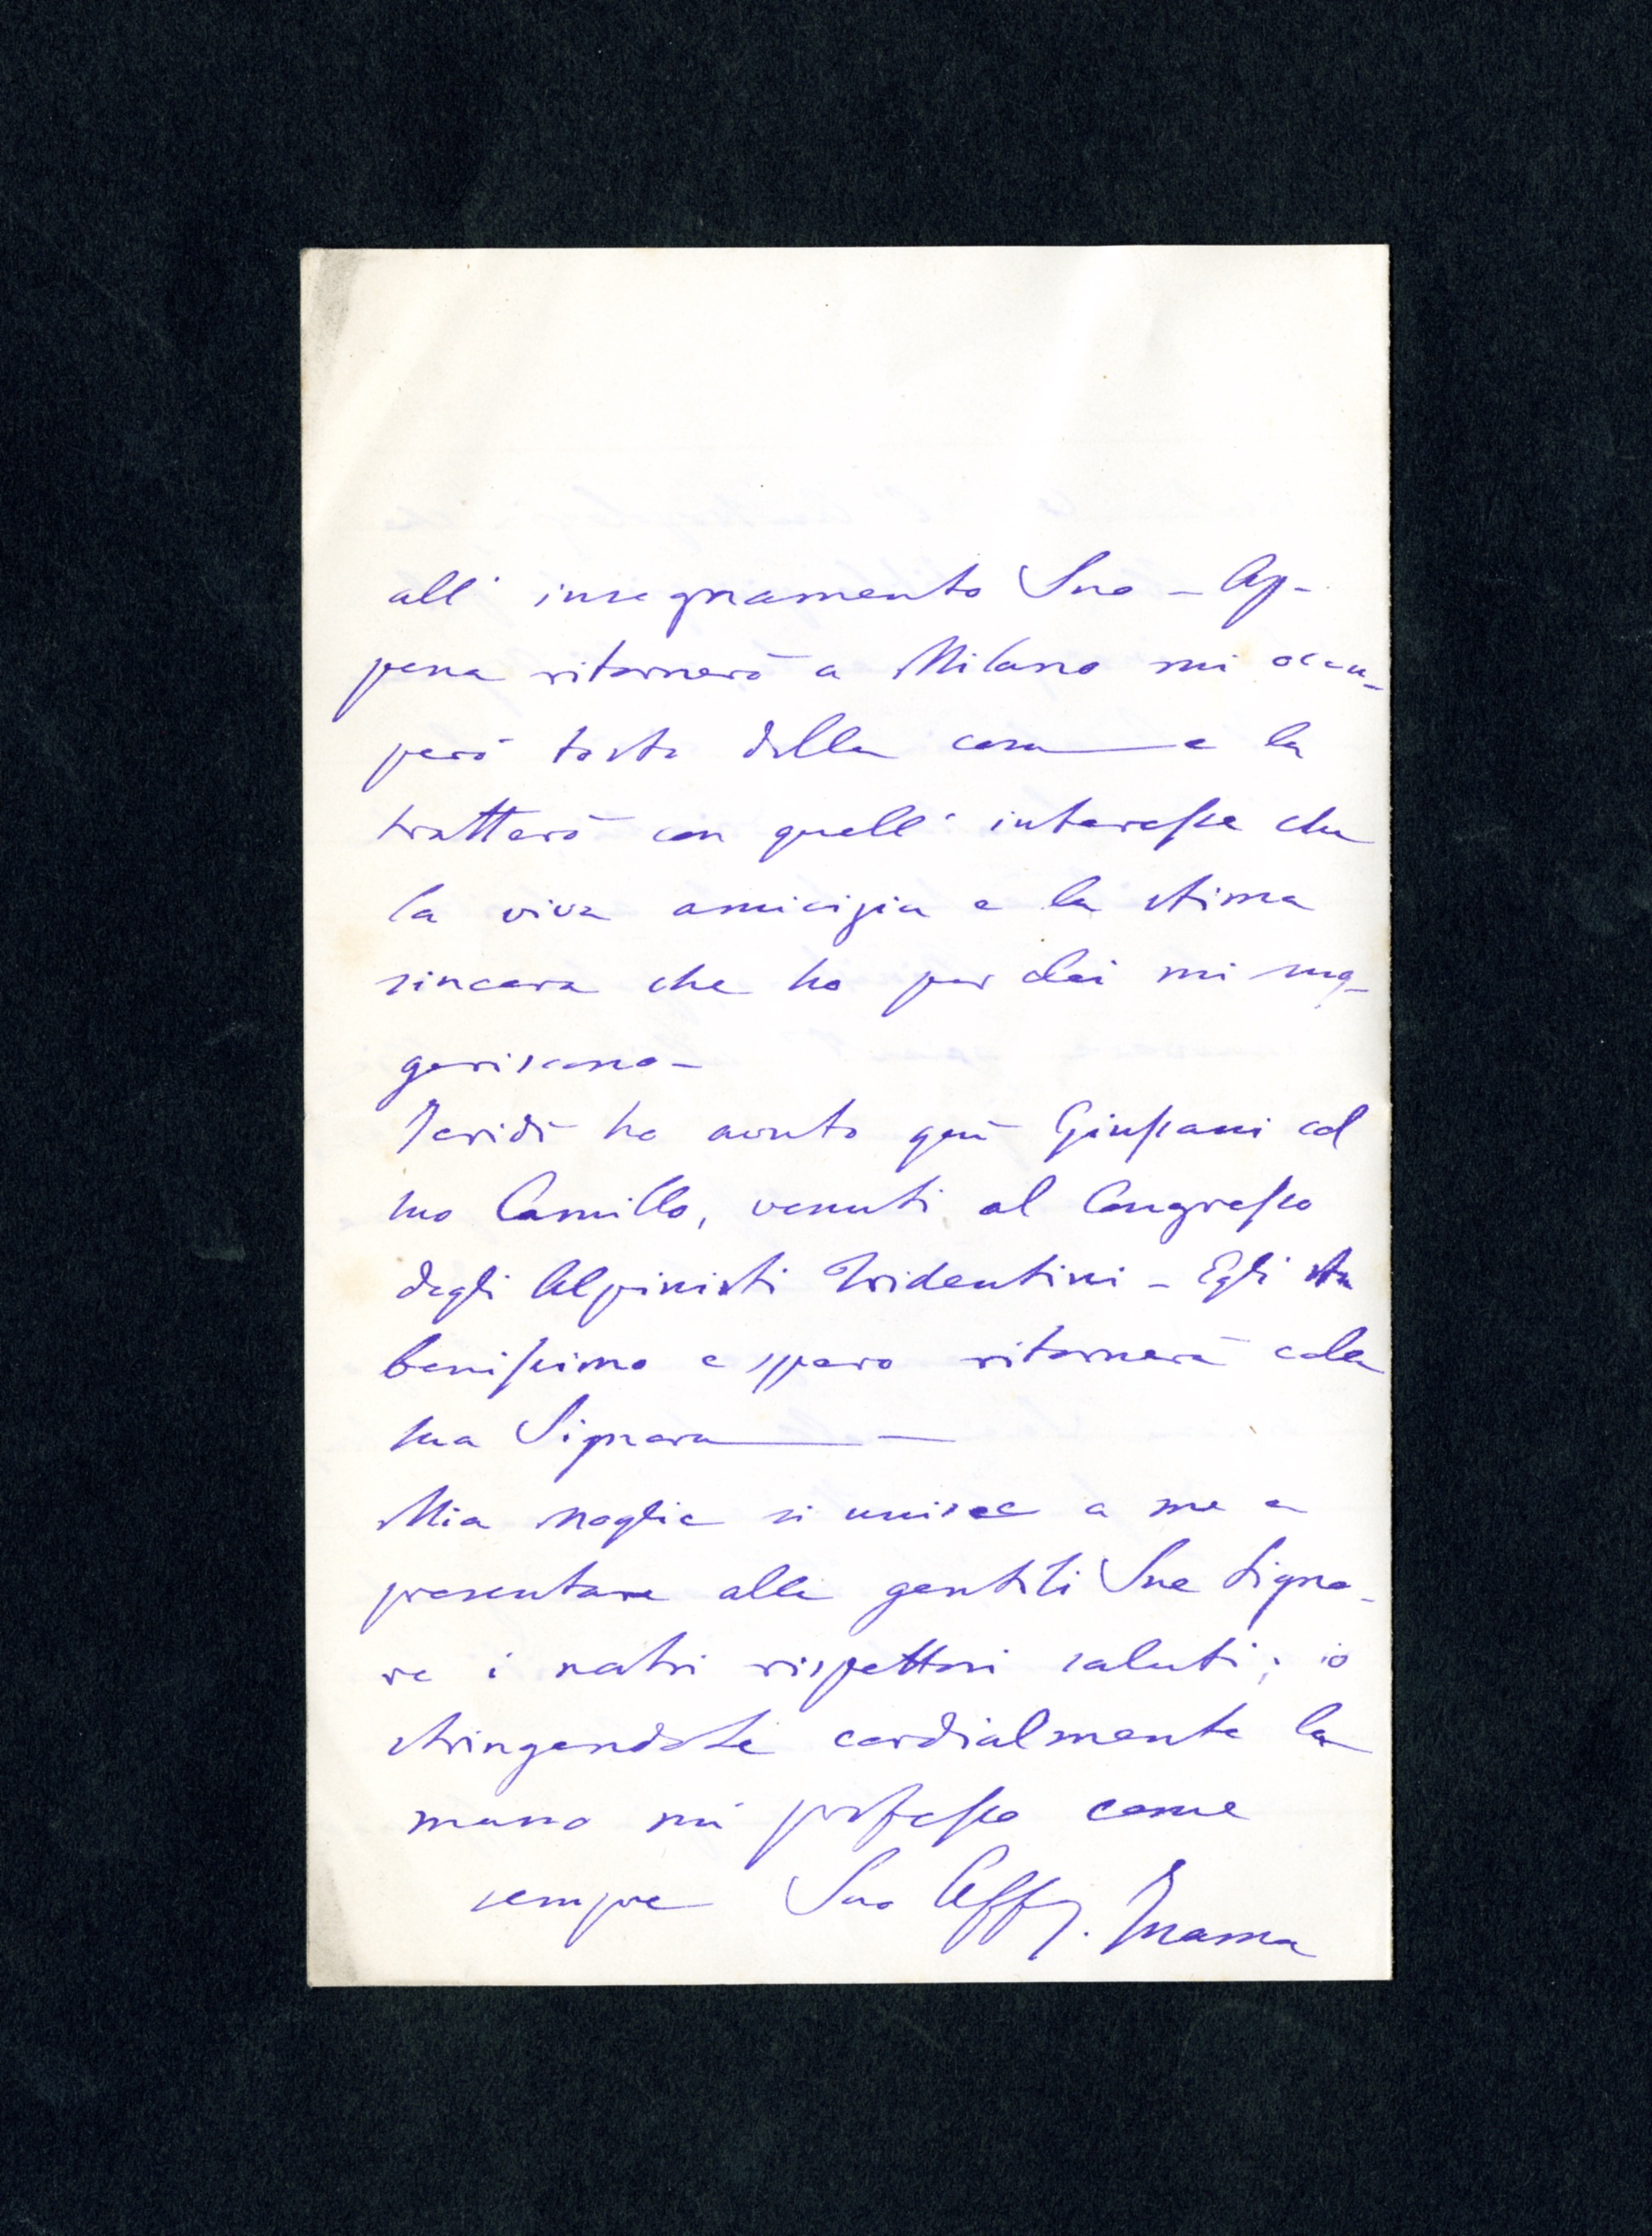 all' insegnamento Suo – Ap-
pena ritornerò a Milano mi occu-
però tosto della cosa e la
tratterò con quell' interesse che
la viva amicizia e la stima
sincera che ho per Lei mi sug-
geriscono –
Ieridì ho avuto quì Giussani col
suo Camillo, venuti al Congresso
degli Alpinisti Tridentini – Egli sta
benissimo e spero ritornerà colla
sua Signora –
Mia moglie si unisce a me a
presentare alle gentili Sue Signo-
re i nostri rispettosi saluti; io
stringendole cordialmente la
mano mi professo come
sempre Suo Aff. Inama